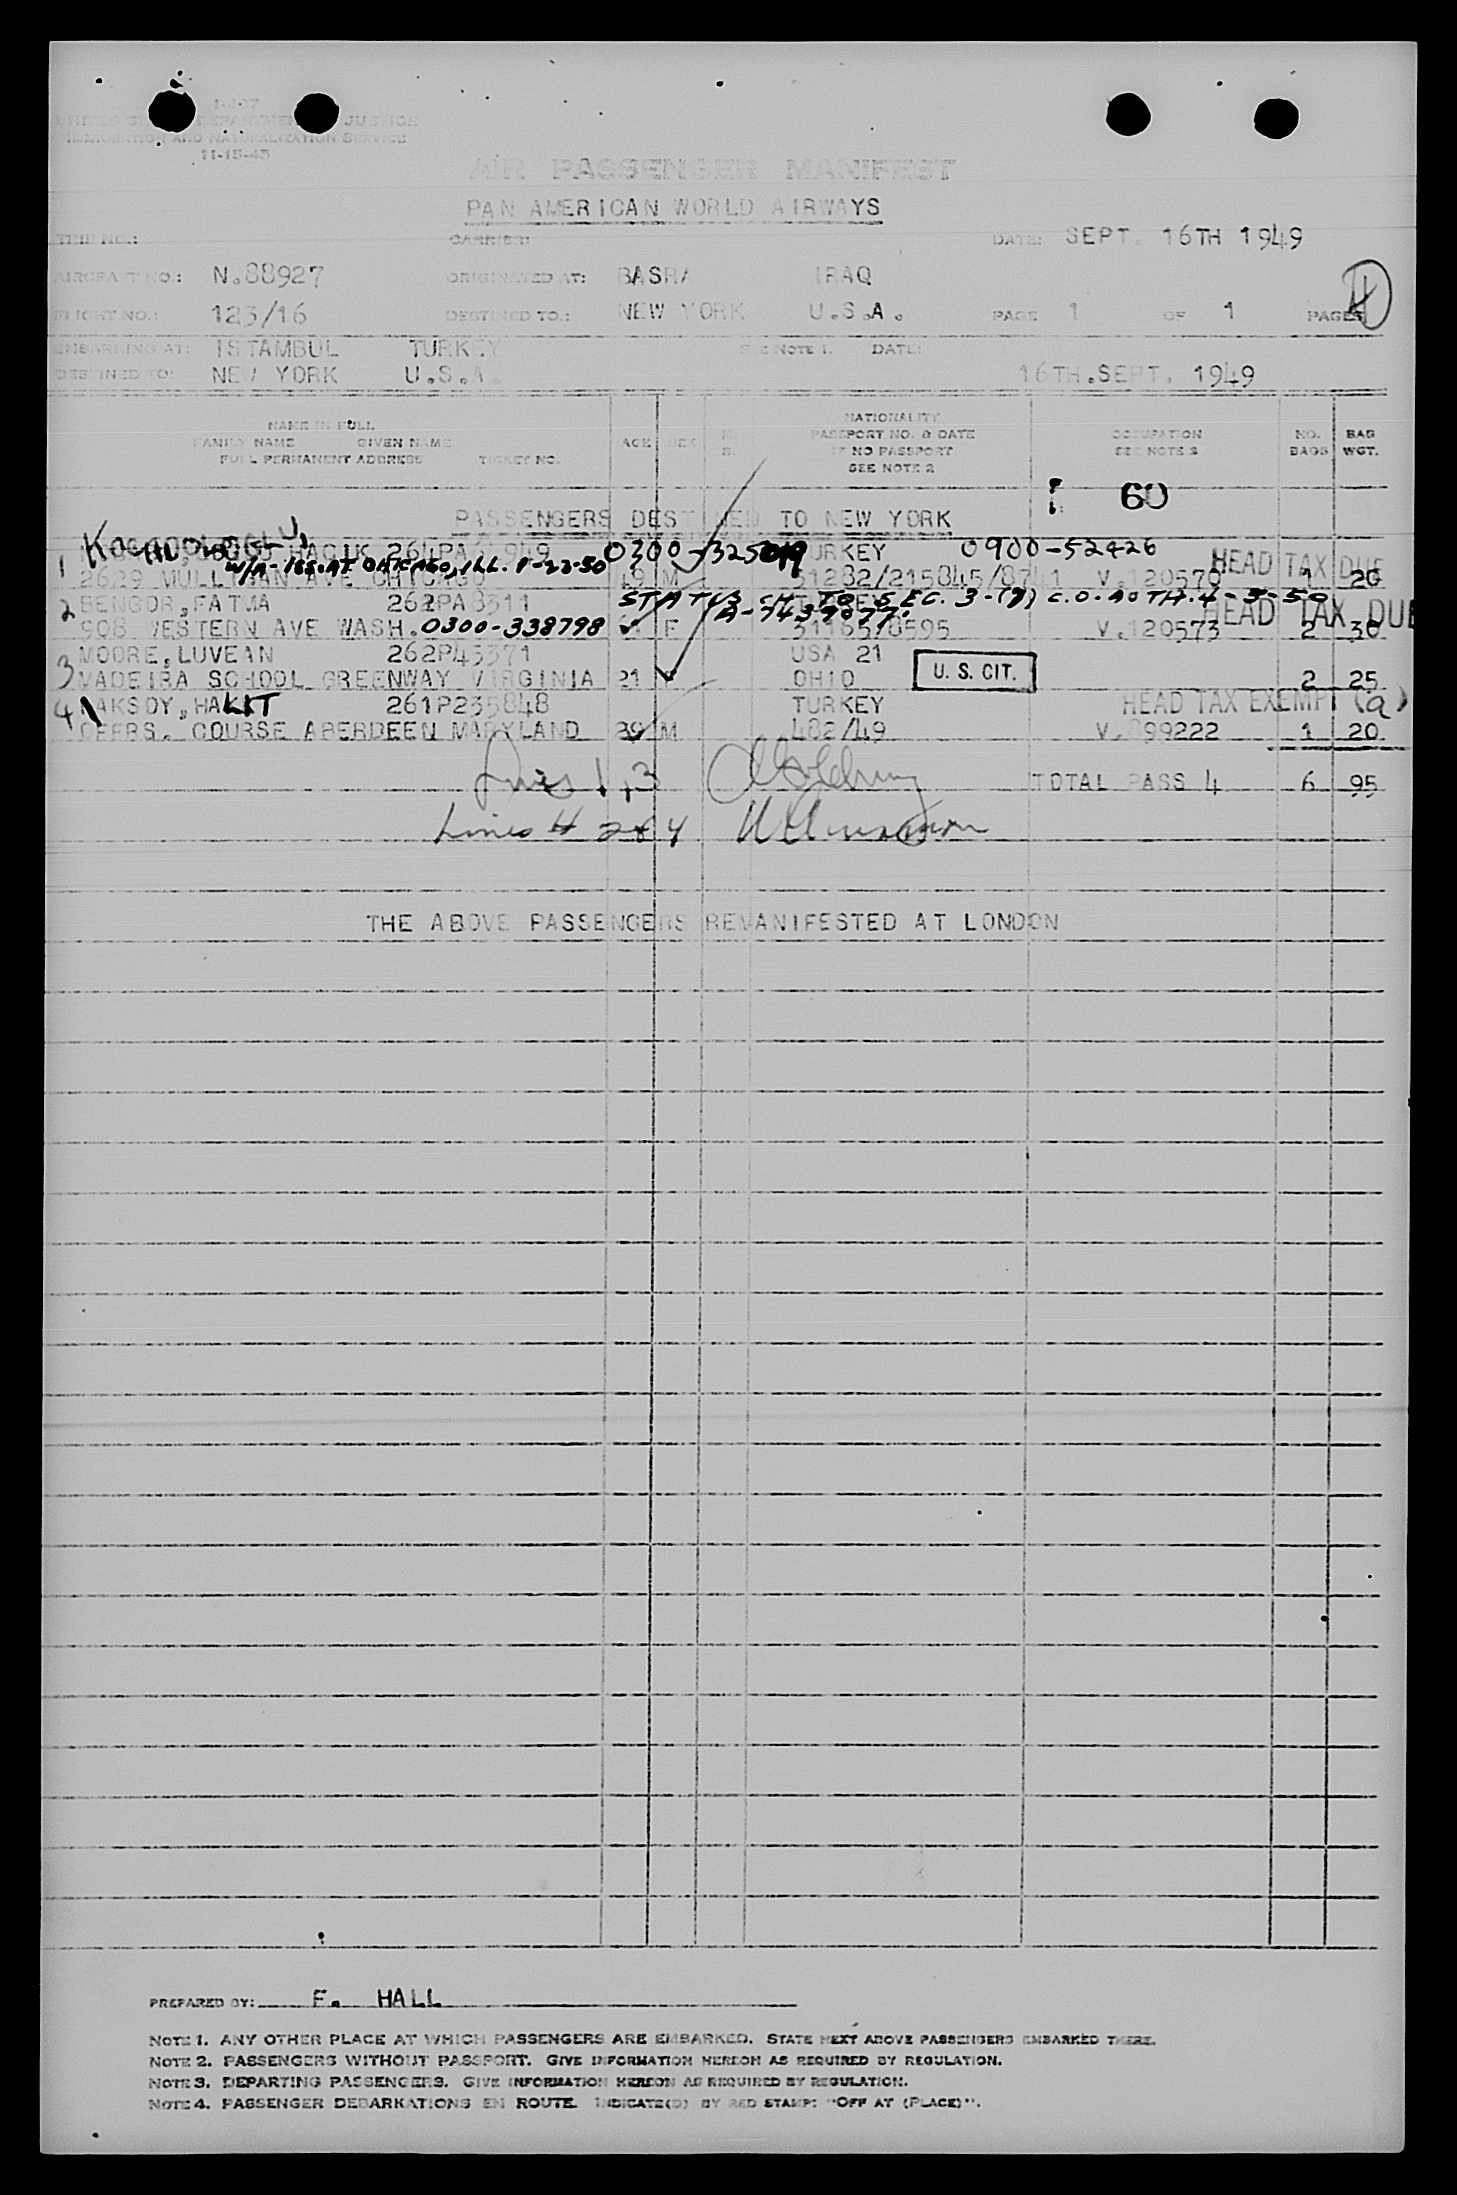 I-407
UNITED STATES DEPARTMENT OF JUSTICE
IMMIGRATION AND NATURALIZATION SERVICE
11-15-45
AIR PASSENGER MANIFEST
PAN AMERICAN WORLD AIRWAYS
TRIP NO.: CARRIER: DATE: SEPT. 16TH 1949
AIRCRAFT NO.: N.88927 ORIGINATED AT: BASRA IRAQ
FLIGHT NO.: 123/16 DESTINED TO.: NEW YORK U.S.A. PAGE 1 OF 1 PAGES
EMBARKING AT: ISTAMBUL TURKEY SEE NOTE 1. DATE:
DESTINED TO: NEW YORK U.S.A. 16TH.SEPT. 1949
NAME IN FULL
FAMILY NAME GIVEN NAME
FULL PERMANENT ADDRESS TICKET NO.
AGE SEX
NATIONALITY
PASSPORT NO. & DATE
IF NO PASSPORT
SEE NOTE 2
OCCUPATION
SEE NOTE 3
NO. BAGS
BAG WGT.
60
PASSENGERS DESTINED TO NEW YORK
1 HACIK 264PA 0300-325019 TURKEY 0900-52426 HEAD TAX DUE
W/A-ISS. AT CHICAGO, ILL.
2629 MULLIMAN AVE CHICAGO 49 M 31282/215845/8741 V.120570 1 20
2 BENGOR,FATMA 262PA8311 TURKEY
STATUS CH TO SEC. 3-(7) C.O. AUTH. 4-3-50 HEAD TAX DUE
A-7439077.
908 WESTERN AVE WASH. 0300-338798 F 31165/0595 V.120573 2 30
3 MOORE,LUVEAN 262P45371 USA 21
MADEIRA SCHOOL GREENWAY VIRGINIA 21 F OHIO U. S. CIT. 2 25
4 AKSOY,HALIT 261P235848 TURKEY HEAD TAX EXEMPT (a)
OFFRS. COURSE ABERDEEN MARYLAND 29 M 482/49 V.899222 1 20
Lines 1,3 TOTAL PASS 4 6 95
Lines # 2 & 4
THE ABOVE PASSENGERS REMANIFESTED AT LONDON
PREPARED BY: F. HALL
NOTE 1. ANY OTHER PLACE AT WHICH PASSENGERS ARE EMBARKED. STATE NEXT ABOVE PASSENGERS EMBARKED THERE.
NOTE 2. PASSENGERS WITHOUT PASSPORT. GIVE INFORMATION HEREON AS REQUIRED BY REGULATION.
NOTE 3. DEPARTING PASSENGERS. GIVE INFORMATION HEREON AS REQUIRED BY REGULATION.
NOTE 4. PASSENGER DEBARKATIONS EN ROUTE. INDICATE(D) BY RED STAMP: "OFF AT (PLACE)".